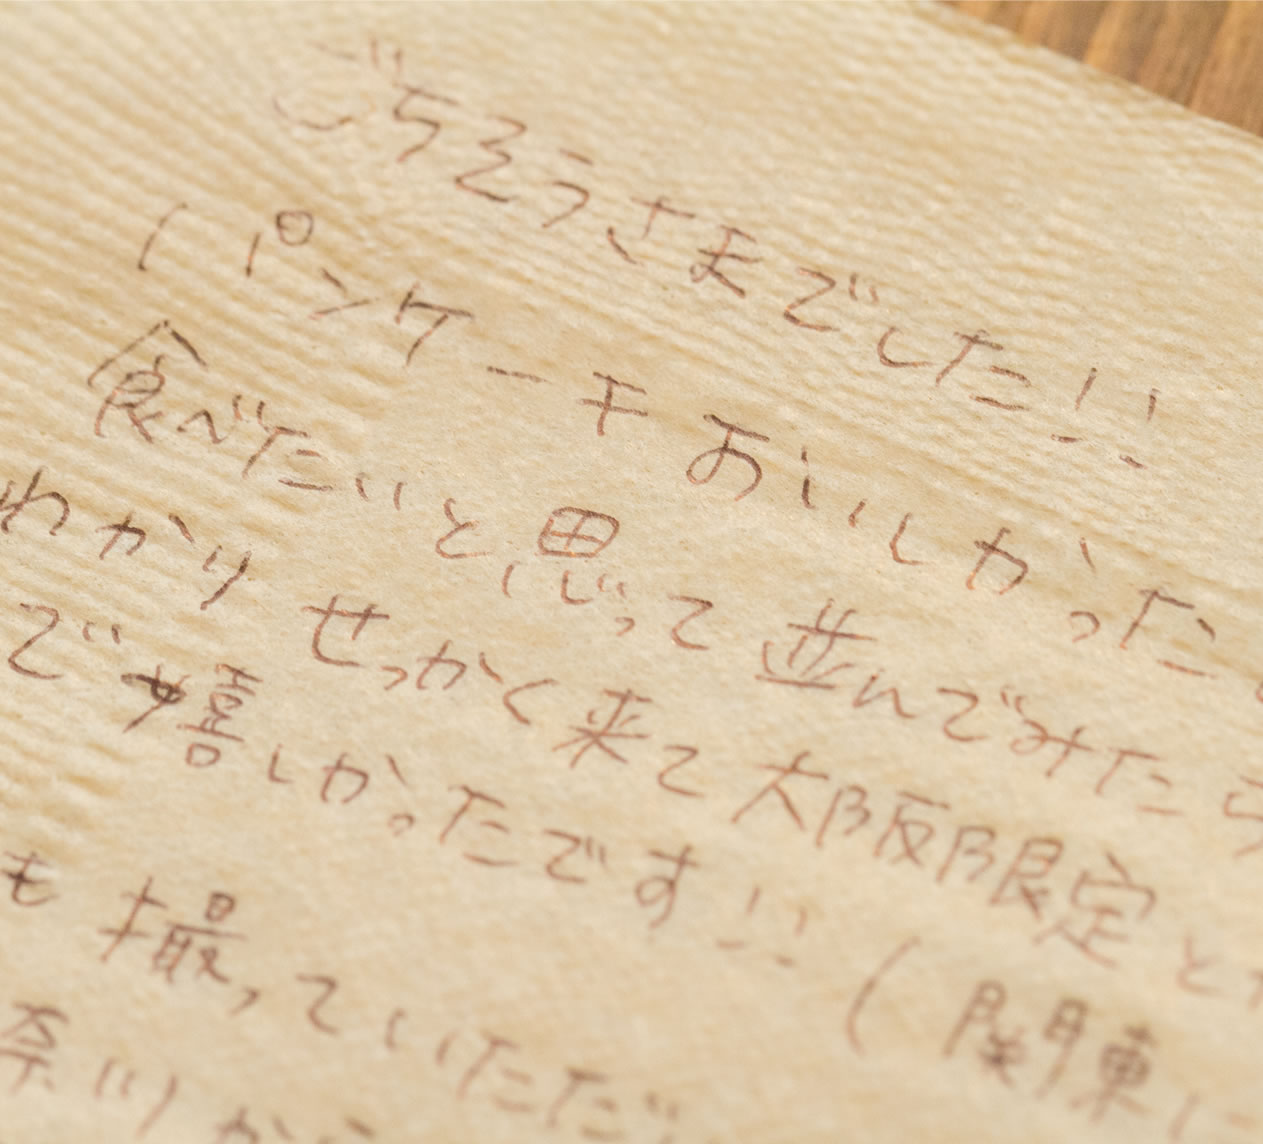 ごちそうさまでした!!
パンケーキおいしかった
食べたいと思って並んでみたら
わかり せっかく来て大阪限定と
で嬉しかったです!! (関東に
も撮っていただ
奈川から